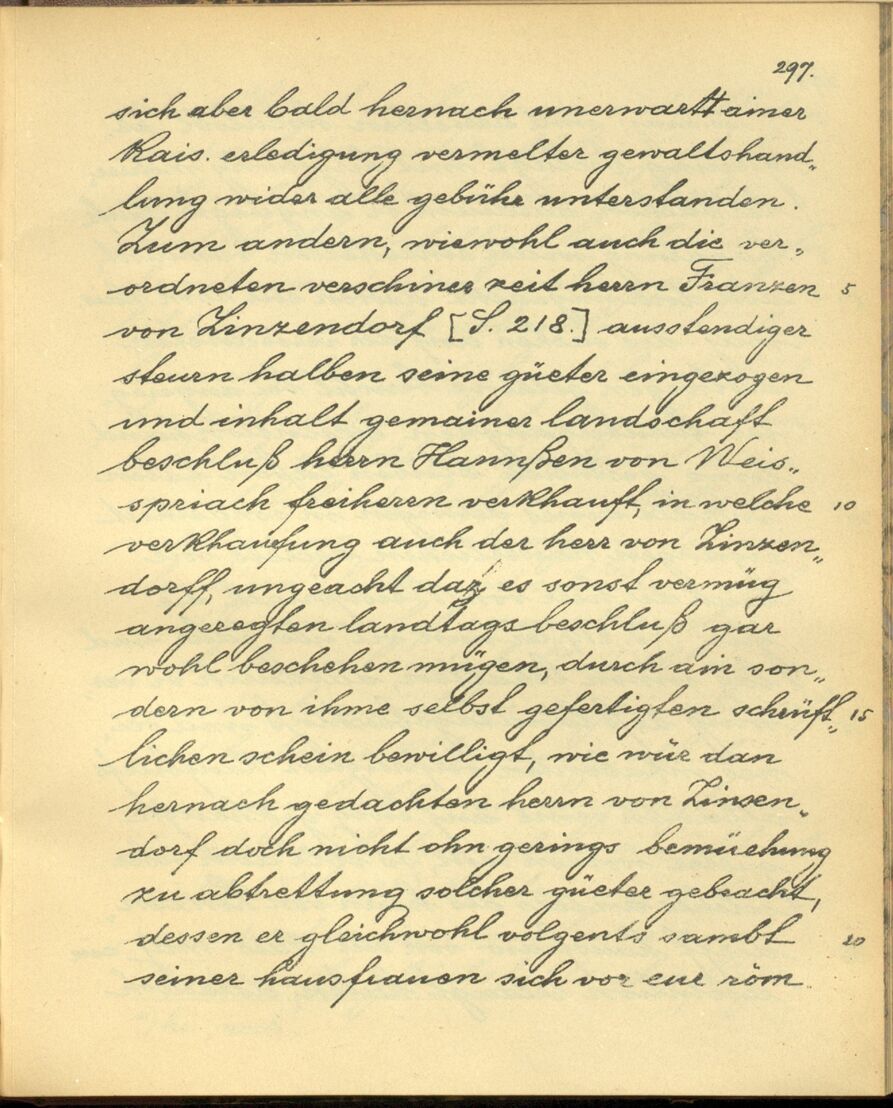 297.
sich aber bald hernach unerwartt ainer
Kais. erledigung vermelter gewaltshand„
lung wider alle gebühr unterstanden.
Zum andern, wiewohl auch die ver„
ordneten verschiner zeit herrn Franzen 5
von Zinzendorf [S. 218.] ausstendiger
steurn halben seine güeter eingezogen
und inhalt gemainer landschaft
beschluß herrn Hannßen von Weis„
spriach freiherrn verkhauft, in welche 10
verkhaufung auch der herr von Zinzen„
dorff, ungeacht daz es sonst vermüg
angeregten landtagsbeschluß gar
wohl beschehen mügen, durch ain son„
dern von ihme selbst gefertigten schrüft„ 15
lichen schein bewilligt, wie wür dan
hernach gedachten herrn von Zinsen„
dorf doch nicht ohn gerings bemüehung
zu abtrettung solcher güeter gebracht,
dessen er gleichwohl volgents sambt 20
seiner hausfrauen sich vor eur röm